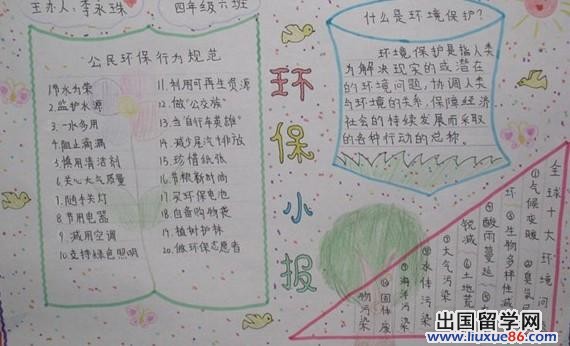 主办人：李永珠
四年级六班
公民环保行为规范
1.节水为荣
2.监护水源
3.一水多用
4.阻止滴漏
5.慎用清洁剂
6.关心大气质量
7.随手关灯
8.节用电器
9.减用空调
10.支持绿色照明
11.利用可再生资源
12.做“公交族”
13.当“自行车英雄”
14.减少尾汽排放
15.珍惜纸张
16.节粮新时尚
17.买环保电池
18.自备购物袋
19.植树护林
20.做环保志愿者
环保小报
什么是环境保护？
环境保护是指人类
为解决现实的或潜在
的环境问题，协调人类
与环境的关系，保障经济
社会的持续发展而采取
的各种行动的总称。
全球十大环境问
①气候变暖
②臭氧
③生物多样性减
④酸雨蔓延
⑤
锐减
⑥土地荒
⑦大气污染
⑧水体污染
⑨海洋污染
⑩固体废
物污染
出国留学网
www.liuxue86.com